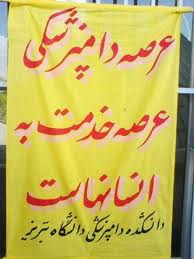 عرصه دامپزشکی
عرصه خدمت به
انسانهاست
دانشکده دامپزشکی دانشگاه تبریز